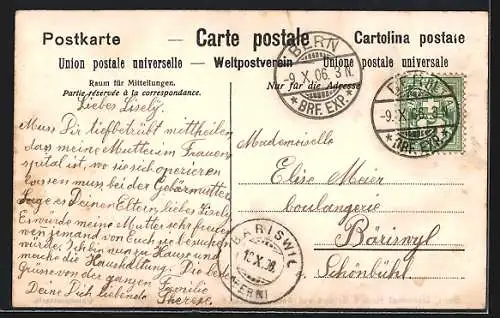 Postkarte — Carte postale — Cartolina postale
Union postale universelle — Weltpostverein — Unione postale universale
Raum für Mitteilungen.
Partie réservée à la correspondance.
Nur für die Adresse
BERN
-9.X.06. 3 N.
* BRF. EXP. *
BERN
-9.X
* BRF. EXP. *
Liebes Lisely!
Muss Dir tiefbetrübt mittheilen
dass meine Mutter im Frauen
spital ist, wo sie sich operieren
lassen muss bei der Gebärmutter
Sage es Deinen Eltern, liebes Lisely
Es würde meine Mutter sehr freuen
wen jemand von Euch sie besuchen
würde! Ich bin nun zu Hause und
mache die Haushaltung. Die besten
Grüsse von der ganzen Familie
Deine Dich liebende Therese.
Mademoiselle
Elise Meier
boulangerie
Bäriswyl
b. Schönbühl.
BARISWIL
X.06.
(BERN)